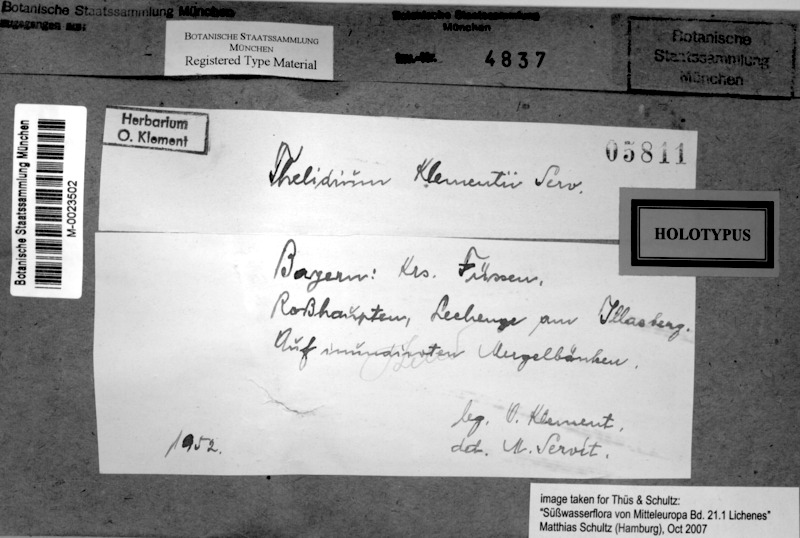 Botanische Staatssammlung München
zugegangen aus:
BOTANISCHE STAATSSAMMLUNG
MÜNCHEN
Registered Type Material
Botanische Staatssammlung
München
Inv.-Nr. 4837
Botanische
Staatssammlung
München
Botanische Staatssammlung München
M-0023502
Herbarium
O. Klement
05811
Thelidium Klementii Serv.
HOLOTYPUS
Bayern: Krs. Füssen,
Roßhaupten, Lechenge am Illasberg.
Auf inundirten Mergelbänken.
1952.
leg. O. Klement.
det. M. Servít.
image taken for Thüs & Schultz:
"Süßwasserflora von Mitteleuropa Bd. 21.1 Lichenes"
Matthias Schultz (Hamburg), Oct 2007